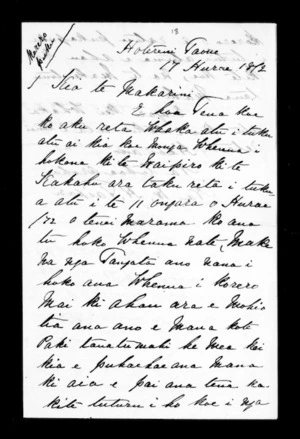 18
Korero
Hohreni Taone
17 Hurae 1872
Kia te Makarini
E hoa Tena koe
ko aku reta Whaka atu i tuku
atu ai kia koe monga Whenua i
hokona ki te Waipiro ki te
Kakahu ara taku reta i tuku
a atu i te 11 ongara o Hurae
/72 o tenei marama ko ana
tu hoko Whenua nate Make
na nga Tangata ano nana i
hoko ana Whenua i Korero
Mai ki ahau ara e mohio
tia ana ano e Mana koti
Paki ke mea kai
kia e puhaehae ana Mana
ki aia e pai ana tena ka
kite tuturu i ho koe i nga